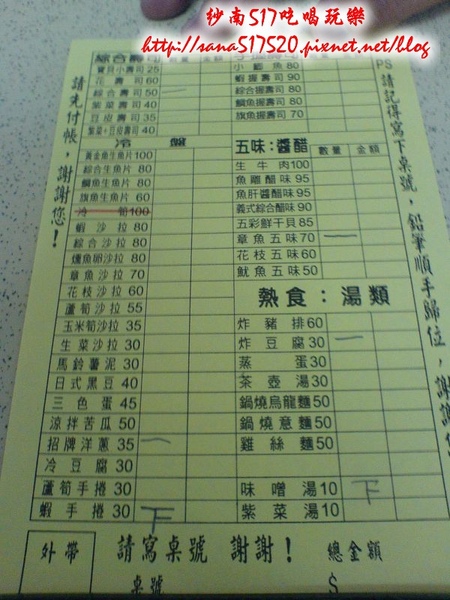 紗南517吃喝玩樂
http://sana517520.pixnet.net/blog
請先付帳，謝謝您！
綜合壽司 數量 金額
寶貝小壽司 25
花壽司 60
綜合壽司 50 一
紫菜壽司 40
豆皮壽司 35
紫菜+豆皮壽司 40
冷盤
黃金魚生魚片 100
綜合生魚片 80
鯛魚生魚片 80
旗魚生魚片 60
冷筍 100
蝦沙拉 80
綜合沙拉 80
燻魚卵沙拉 80
章魚沙拉 70
花枝沙拉 60
蘆筍沙拉 55
玉米筍沙拉 35
生菜沙拉 30
馬鈴薯泥 30
日式黑豆 40
三色蛋 45
涼拌苦瓜 50
招牌洋蔥 35 一
冷豆腐 30
蘆筍手捲 30
蝦手捲 30 下
手握壽司 數量 金額
小鮑魚 80
蝦握壽司 90
綜合握壽司 80
鯛魚握壽司 80
旗魚握壽司 70
五味：醬醋 數量 金額
生牛肉 100
魚雕醋味 95
魚肝醬醋味 95
義式綜合醋味 90
五彩鮮干貝 85
章魚五味 70 一
花枝五味 60
魷魚五味 50
熱食：湯類
炸豬排 60
炸豆腐 30 一
蒸蛋 30
茶壺湯 30
鍋燒烏龍麵 50
鍋燒意麵 50
雞絲麵 50
味噌湯 10 下
紫菜湯 10
PS
請記得寫下桌號，鉛筆順手歸位，謝謝您
外帶
請寫桌號 謝謝！
桌號
總金額
$